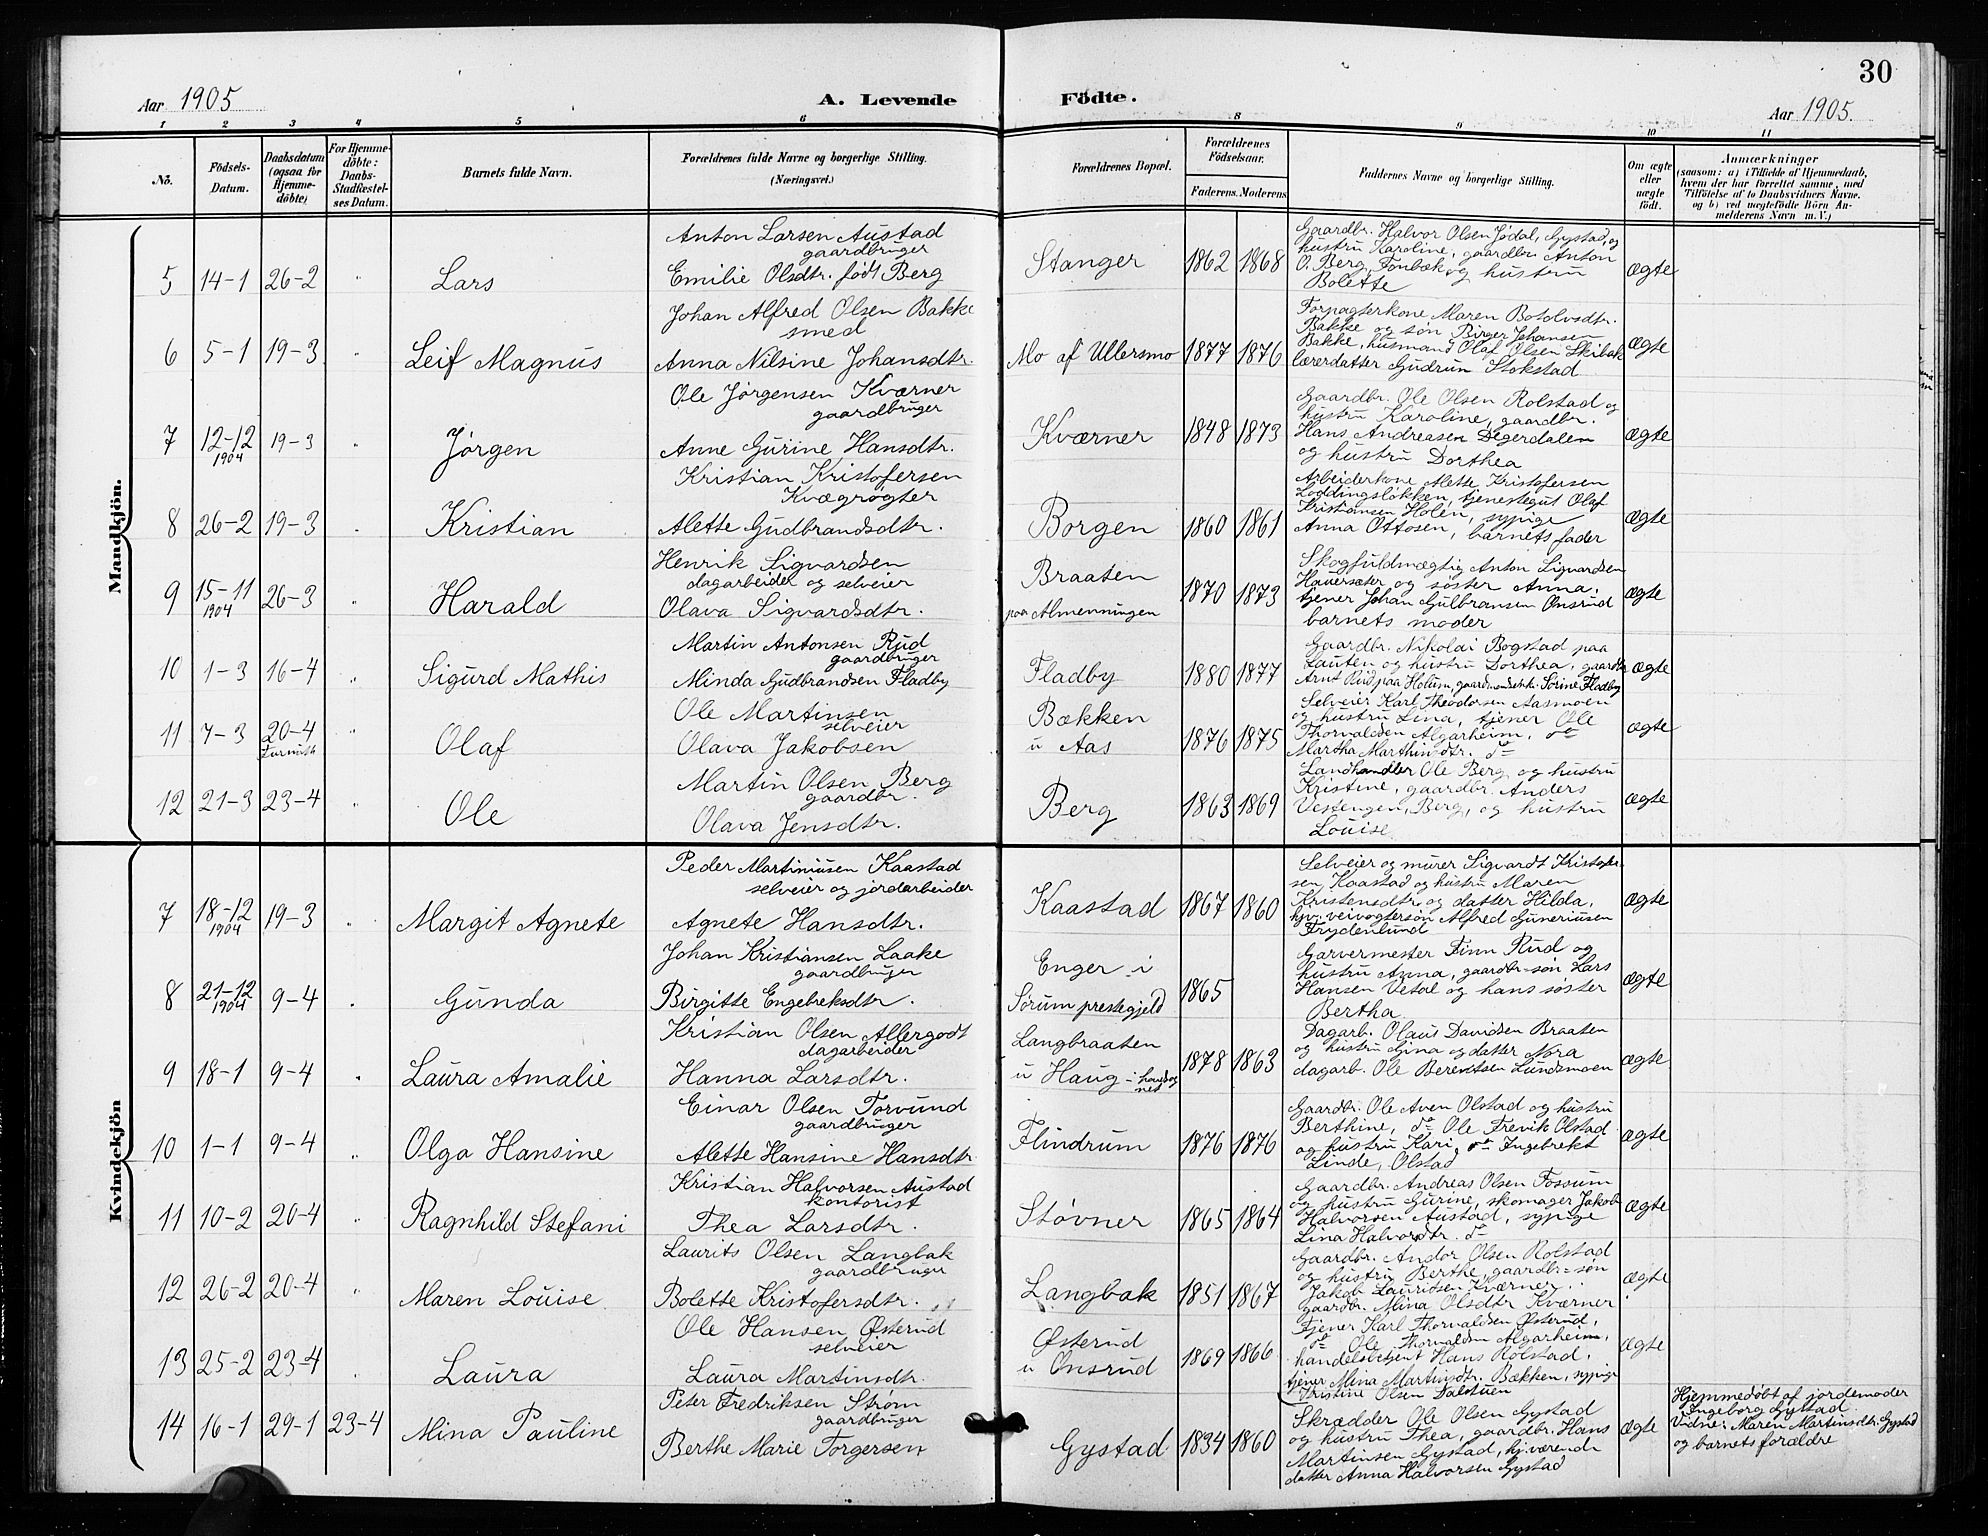 30
Aar 1905
A. Levende
Födte.
Aar 1905.
1 2 3 4 5 6 8 9 10 11
No.
Födsels-
Datum.
Daabsdatum
(ogsaa for
Hjemme-
döbte)
For Hjemme-
döbte:
Daabs-
Stadfæstel-
ses Datum.
Barnets fulde Navn.
Forældrenes fulde Navne og borgerlige Stilling.
(Næringsvei.)
Forældrenes Bopæl.
Forældrenes
Födselsaar.
Faderens. Moderens
Faddernes Navne og borgerlige Stilling.
Om ægte
eller
uægte
födt.
Anmærkninger
(saasom: a) i Tilfælde af Hjemmedaab,
hvem der har forrettet samme, med
Tilföielse af to Daabsvidners Navne.
og b) ved uægtefödte Börn An-
melderens Navn m. V.)
Mandkjön.
5 14-1 26-2 " Lars
Anton Larsen Austad
gaardbruger
Emilie Olsdtr. født Berg
Stanger 1862 1868
Gaardbr. Halvor Olsen Jødal, Gystad, og
hustru Karoline, gaardbr. Anton
O. Berg, Fonbæk og hustru
Bolette
ægte
6 5-1 19-3 " Leif Magnus
Johan Alfred Olsen Bakke
smed
Anna Nilsine Johansdtr.
Mo af Ullersmo 1877 1876
Forpagterkone Maren Botolvsdtr.
Bakke og søn Birger Johanse
Bakke, husmand Olaf Olsen Skibak
lærerdatter Gudrun Stokstad
ægte
7 12-12 1904 19-3 " Jørgen
Ole Jørgensen Kværner
gaardbruger
Anne Gurine Hansdtr.
Kværner 1848 1873
Gaardbr. Ole Olsen Rolstad og
hustru Karoline, gaardbr.
Hans Andreasen Degerdalen
og hustru Dorthea
ægte
8 26-2 19-3 " Kristian
Kristian Kristofersen
Kvægrøgter
Alette Gudbrandsdtr.
Borgen 1860 1861
Arbeiderkone Alette Kristofersen
Loddingsløkken, tjenestegut Olaf
Kristiansen Holen, sypige
Anna Ottosen, barnets fader
ægte
9 15-11 1904 26-3 " Harald
Henrik Sigvardsen
dagarbeider og selveier
Olava Sigvardsdtr.
Braaten
paa Almenningen 1870 1873
Skogfuldmægtig Anton Sigvardsen
Haversæter og søster Anna,
tjener Johan Gulbransen Onsrud
barnets moder
ægte
10 1-3 16-4 " Sigurd Mathis
Martin Antonsen Rud
gaardbruger
Minda Gudbrandsen Fladby
Fladby 1880 1877
Gaardbr. Nikolai Bogstad paa
Lauten og hustru Dorthea, gaardbr
Arnt Rud paa Holum, gaardmandsenke Sørine Fladby
ægte
11 7-3 20-4 " Olaf
Ole Martinsen
selveier
Olava Jakobsen
Bækken
u Aas 1876 1875
Selveier Karl Theodorsen Aasmoen
og hustru Lina, tjener Ole
Thorvaldsen Algarheim, do
Martha Marthinsdtr. do
ægte
12 21-3 23-4 " Ole
Martin Olsen Berg
gaardbr.
Olava Jensdtr.
Berg 1863 1869
Landhandler Ole Berg og hustru
Kristine, gaardbr. Anders
Vestengen, Berg, og hustru
Louise
ægte
Kvindekjön
7 18-12 1904 19-3 " Margit Agnete
Peder Martiniusen Kaastad
selveier og jordarbeider
Agnete Hansdtr.
Kaastad 1867 1860
Selveier og murer Sigvardt Kristofer-
sen Kaastad og hustru Maren
Kristensdtr. og datter Hilda,
hjv. veivogtersøn Alfred Guneriusen
Frydenlund
ægte
8 21-12 1904 9-4 " Gunda
Johan Kristiansen Laake
gaardbruger
Birgitte Engebreksdtr.
Enger i
Sørum prestegjeld 1865
Garvermester Finn Rud og
hustru Anna, gaardbr-søn Lars
Hansen Vetal og hans søster
Bertha
ægte
9 18-1 9-4 " Laura Amalie
Kristian Olsen Allergodt
dagarbeider
Hanna Larsdtr.
Langbraaten
u Haug 1878 1863
Dagarb. Olaus Davidsen Braaten
og hustru Gina og datter Nora
dagarb. Ole Berentsen Lundsmoen
ægte
10 1-1 9-4 " Olga Hansine
Einar Olsen Torvund
gaardbruger
Alette Hansine Hansdtr
Flindrum 1876 1876
Gaardbr. Ole Aven Olstad og hustru
Berthine, do Ole Trevik Olstad
og hustru Kari, do Ingebrekt
Linde, Olstad
ægte
11 10-2 20-4 " Ragnhild Stefani
Kristian Halvorsen Austad
kontorist
Thea Larsdtr.
Støvner 1865 1864
Gaardbr. Andreas Olsen Fossum
og hustru Gurine, skomager Jakob
Halvorsen Austad, sypige
Lina Halvorsdtr. do
ægte
12 26-2 20-4 " Maren Louise
Laurits Olsen Langbak
gaardbruger
Bolette Kristofersdtr.
Langbak 1851 1867
Gaardbr. Andor Olsen Rolstad
og hustru Berthe, gaardbr=søn
Jakob Lauridsen Kværner
gaardbr. Mina Olsdtr Kværner
ægte
13 25-2 23-4 " Laura
Ole Hansen Østerud
selveier
Laura Martinsdtr.
Østerud
u Onsrud 1869 1866
Tjener Karl Thorvaldsen Østerud,
do Ole Thorvaldsen Algarheim,
handelsbetjent Hans Rolstad,
tjener Mina Martinsdtr. Bækken, sypige
Kristine Olsen Dalstuen
ægte
14 16-1 29-1 23-4 Mina Pauline
Peter Fredriksen Strøm
gaardbruger
Berthe Marie Torgersen
Gystad 1834 1860
Skrædder Ole Olsen Gystad
og hustru Thea, gaardbr. Hans
Martinsen Gystad, hj.værende
datter Anna Halvorsen Gystad
ægte
Hjemmedøbt af jordemoder
Ingeborg Gystad.
Vidne: Maren Martinsdtr. Gystad
og barnets forældre